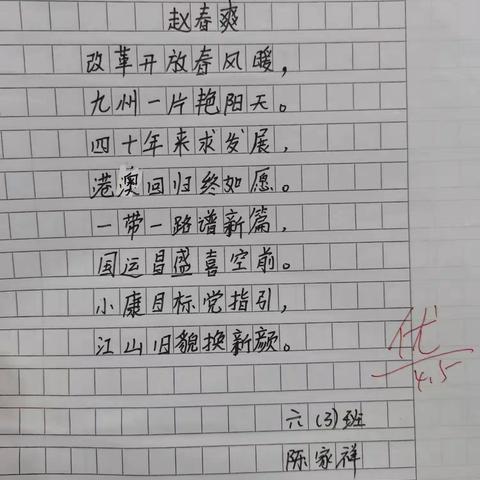 赵春爽
改革开放春风暖，
九州一片艳阳天。
四十年来求发展，
港澳回归终如愿。
一带一路谱新篇，
国运昌盛喜空前。
小康目标党指引，
江山旧貌换新颜。
优
4.5
六(3)班
陈家祥